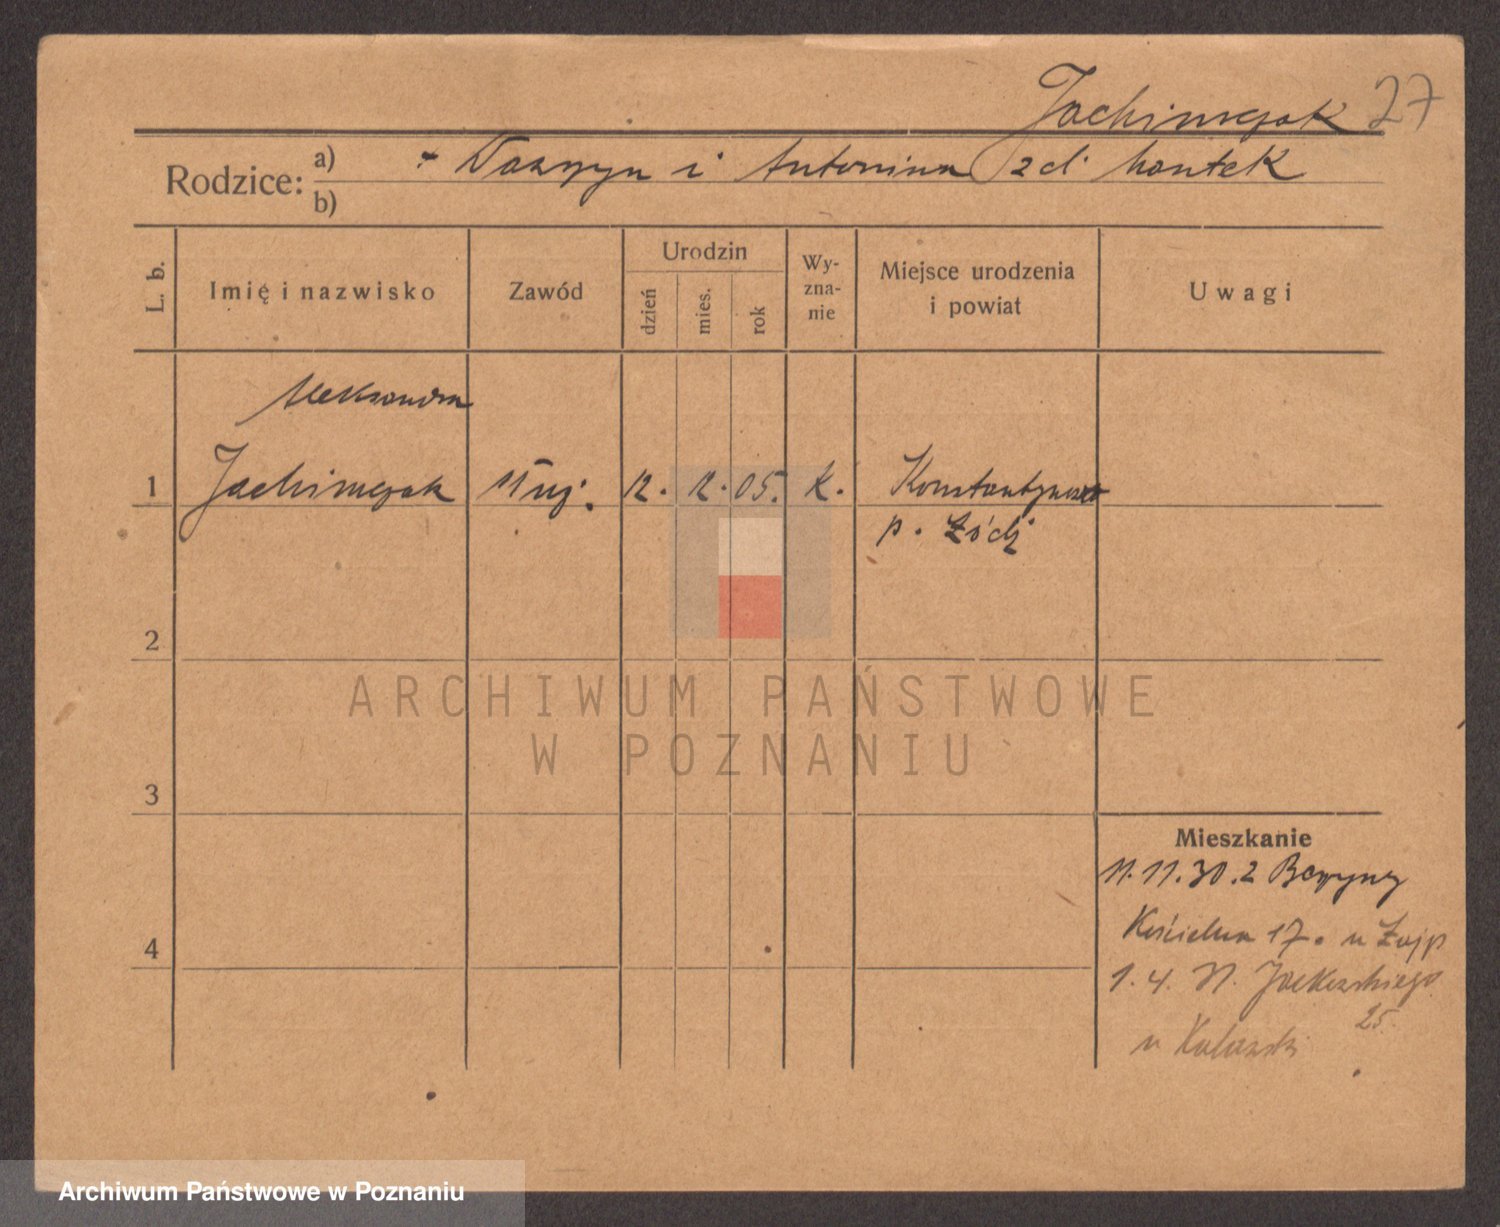 Jachimczak 27
Rodzice: a) Wawrzyn i Antonina z d.
b)
L. b.
Imię i nazwisko
Zawód
Urodzin
dzień
mies.
rok
Wy-
zna-
nie
Miejsce urodzenia
i powiat
Uwagi
Aleksandra
1 Jachimczak służ. 12. 12. 05. k. Konstantynów
p. Łódź
2
3
4
Mieszkanie
11.11.30. z
Kościelna 17. u
1. 4. 31. Jackowskiego
25.
u
ARCHIWUM PAŃSTWOWE
W POZNANIU
Archiwum Państwowe w Poznaniu